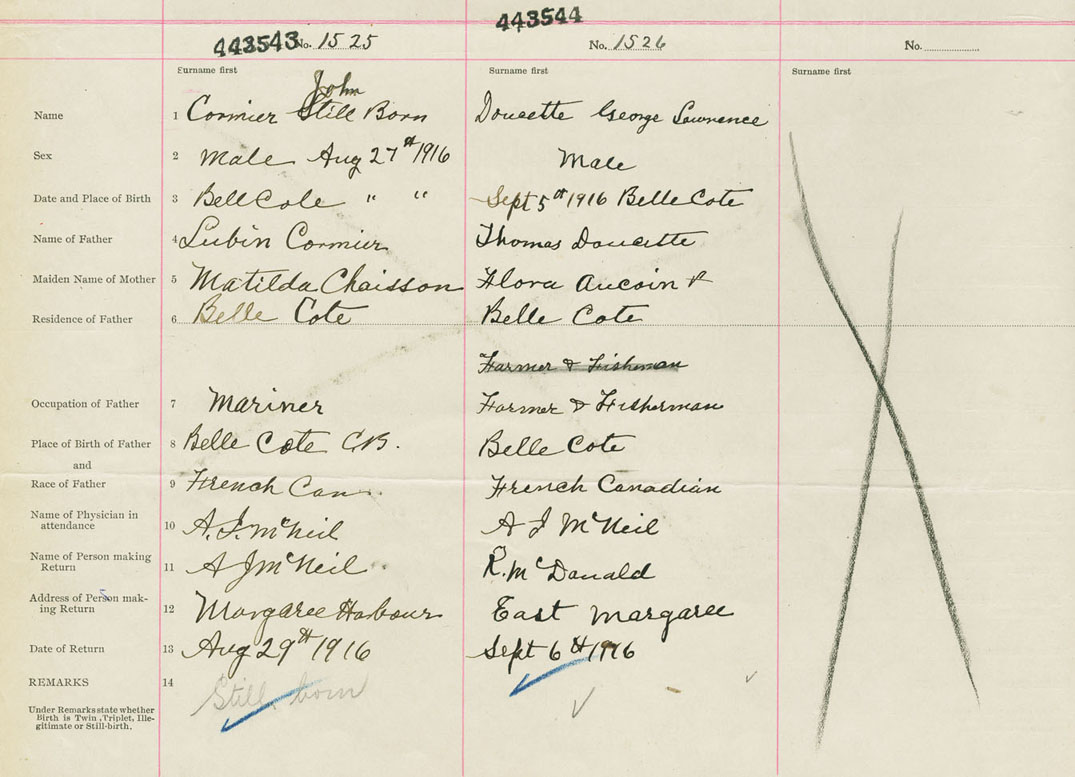 443544
443543 No. 1525
No. 1526
No.
Surname first
Surname first
Surname first
John
Name 1 Cormier Still Born Doucette George Lawrence
Sex 2 Male Aug 27th 1916 Male
Date and Place of Birth 3 Bell Cole " " Sept 5th 1916 Belle Cote
Name of Father 4 Lubin Cormier Thomas Doucette
Maiden Name of Mother 5 Matilda Chaisson Flora Aucoin
Residence of Father 6 Belle Cote Belle Cote
Farmer & Fishman
Occupation of Father 7 Mariner Farmer & Fisherman
Place of Birth of Father 8 Belle Cote C.B. Belle Cote
and
Race of Father 9 French Can French Canadian
Name of Physician in
attendance 10 A. J. McNeil A J McNeil
Name of Person making
Return 11 A J McNeil R. McDonald
Address of Person mak-
ing Return 12 Margaree Harbour East Margaree
Date of Return 13 Aug 29th 1916 Sept 6th 1916
REMARKS 14 Still born
Under Remarks state whether
Birth is Twin, Triplet, Ille-
gitimate or Still-birth.